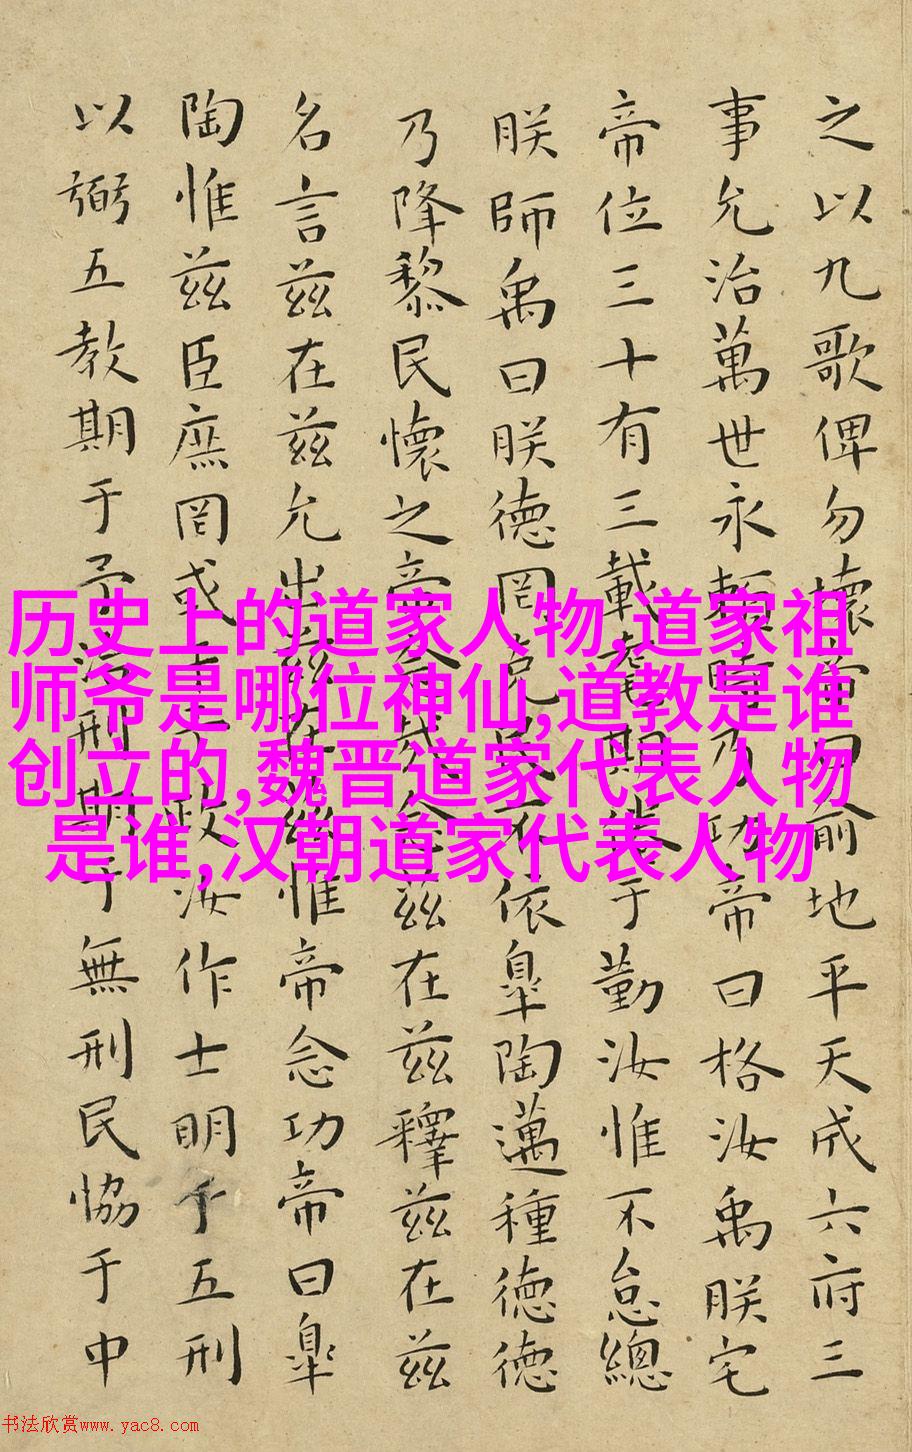 之以九歌俾勿壞帝曰俞地平天成六府三
事允治萬世永賴時乃功帝曰格汝禹朕宅
帝位三十有三載耄期倦于勤汝惟不怠總
朕師禹曰朕德罔克民不依臯陶邁種德德
乃降黎民懷之帝念哉念茲在茲釋茲在茲
名言茲在茲允出茲在茲惟帝念功帝曰臯
陶惟茲臣庶罔或干予政汝作士明于五刑
以弼五教期于予治刑期于無刑民協于中
历史上的道家人物,道家祖
师爷是哪位神仙,道教是谁
创立的,魏晋道家代表人物
是谁,汉朝道家代表人物
书法欣赏www.yac8.com